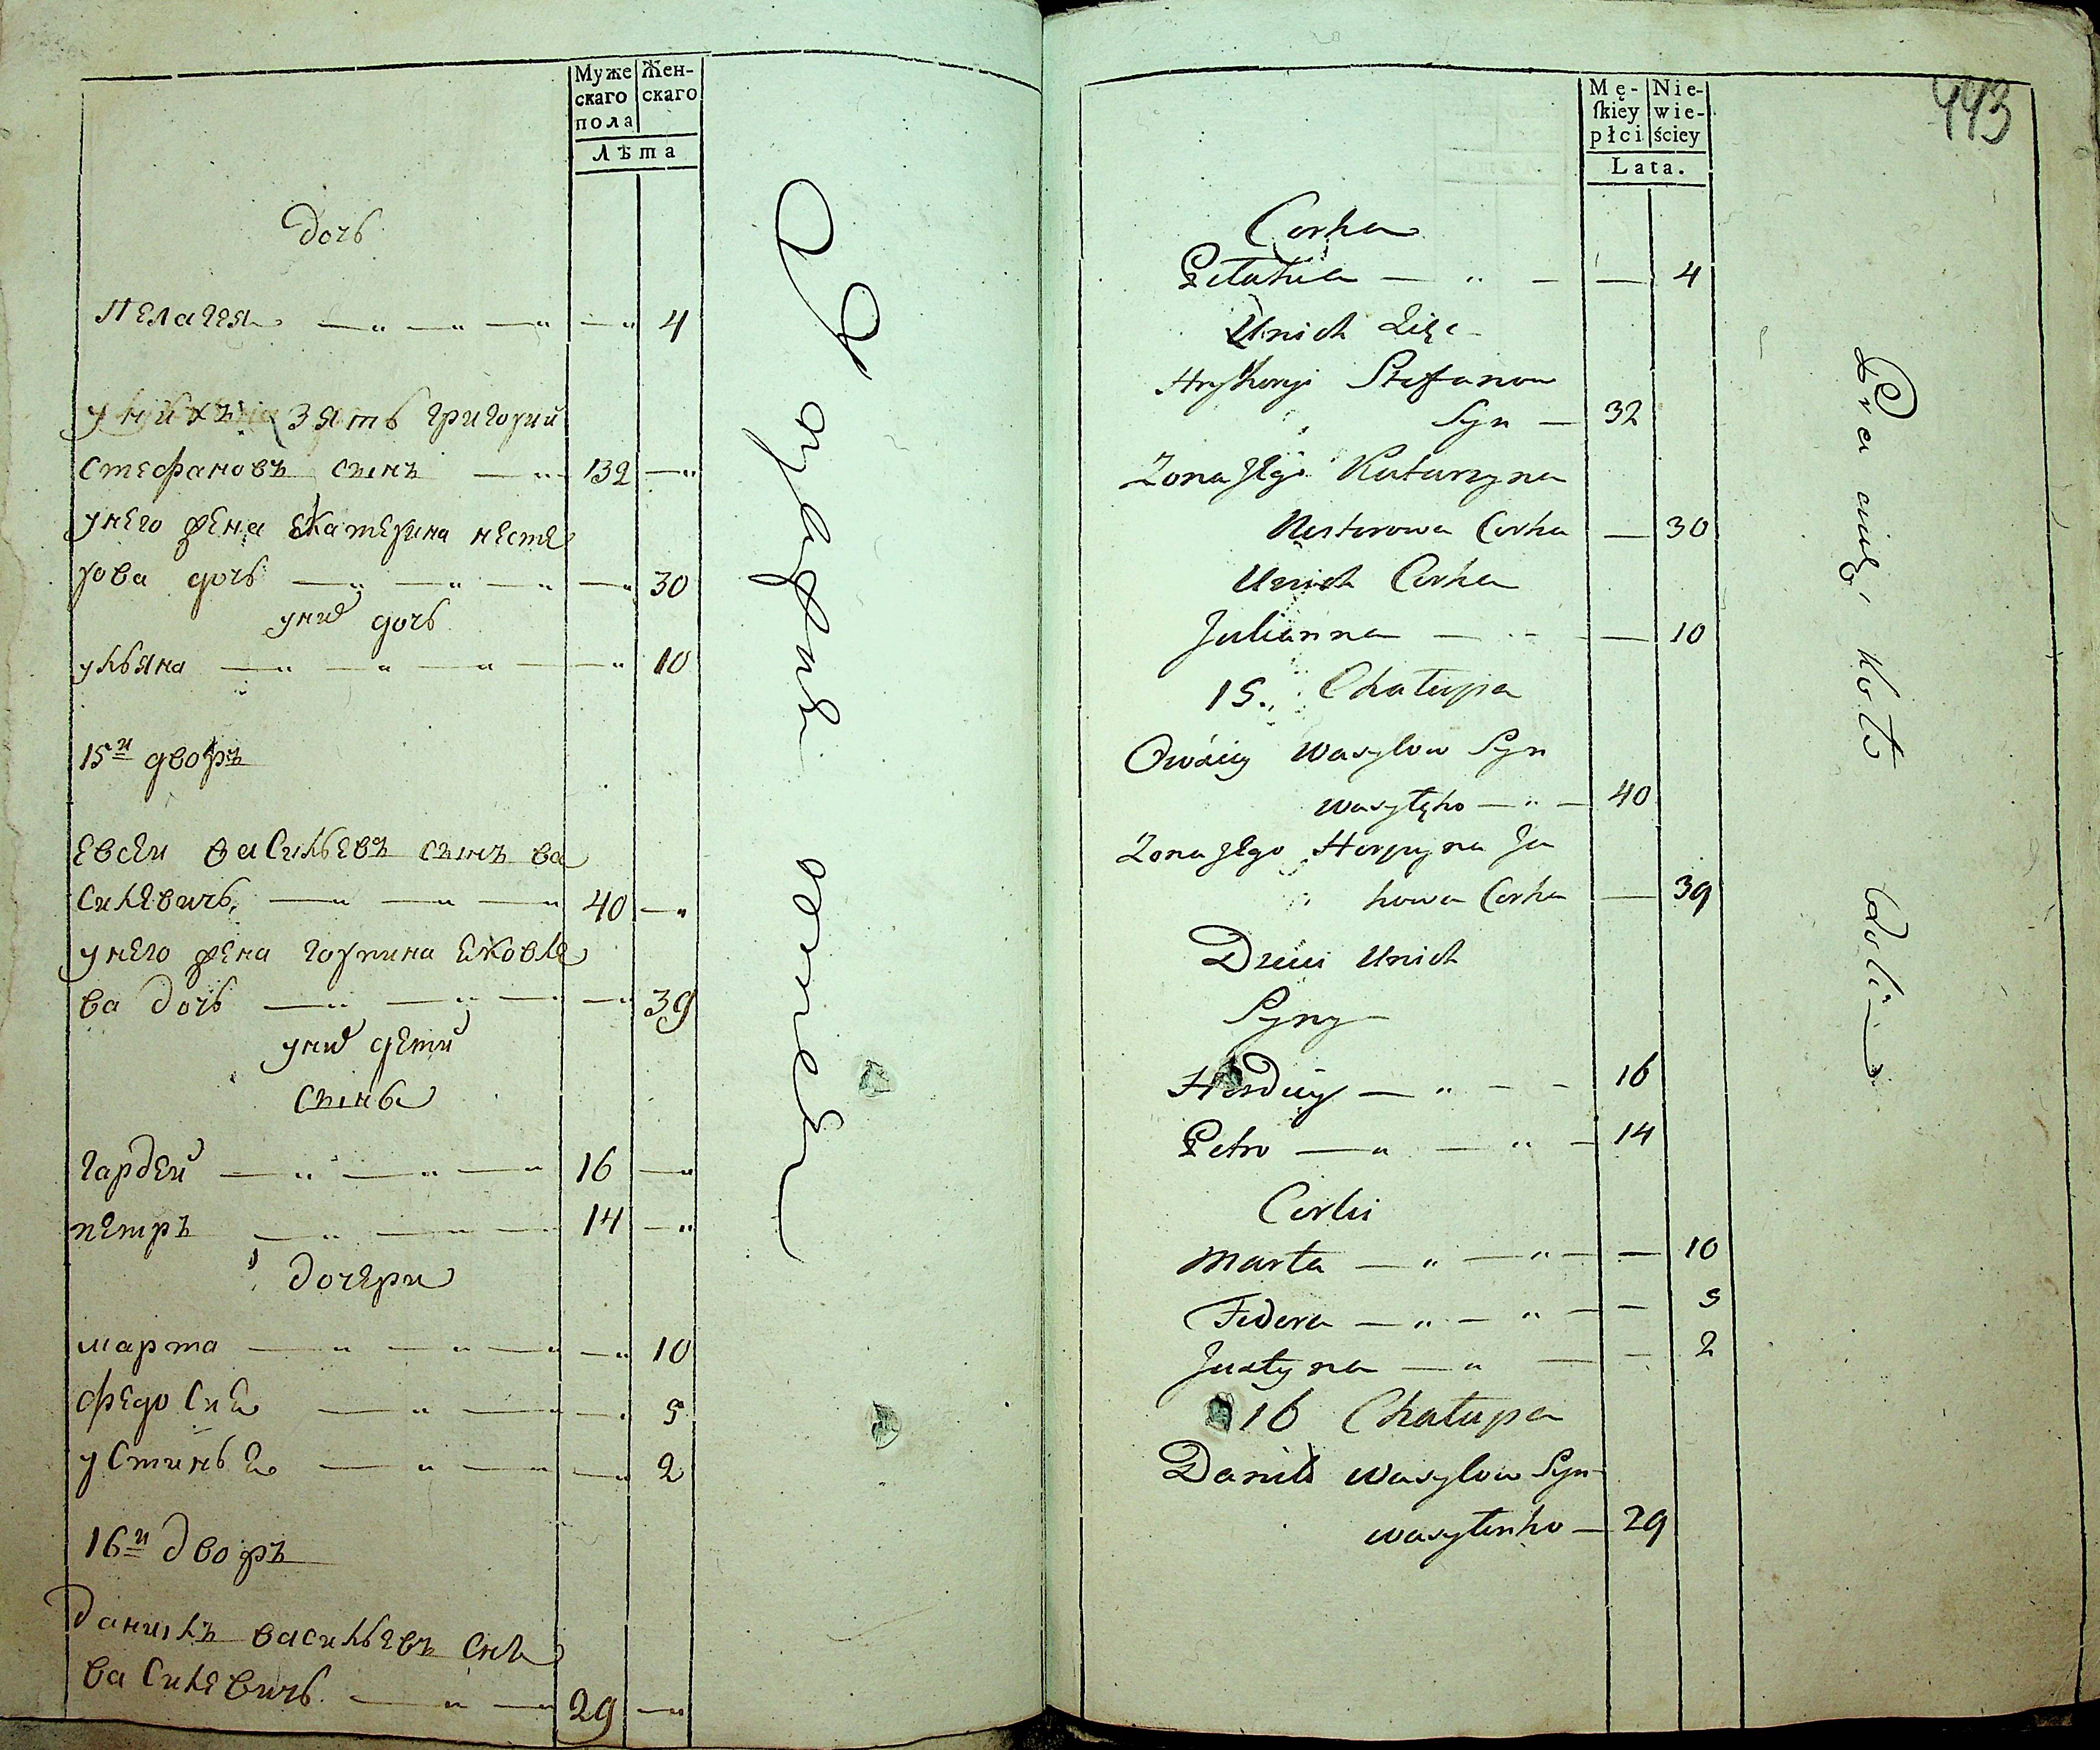 Муже Жен-
скаго скаго
пола
Лѣта
дочь
пелагея 4
уних зять григорий
стефановъ сынъ 32
унего жена екатерина несте
рова дочь 30
уних дочь
ульяна 10
15й дворъ
евсеи васильевъ сынъ ва
силевичь 40
унего жена горпина яковле
ва дочь 39
уних дети
сынья
гардей 16
петръ 14
дочери
марта 10
федосия 5
устинья 2
16й дворъ
данилъ васильевъ снъ
василевичь 29
443
Mę- Nie-
ſkiey wie-
płci ściey
Lata.
Corka
Pelahia 4
Unich Zięc
Hryhoryi Steffanow
Syn 32
Zona Jego Katarzyna
Nesterowa Corka 30
Unich Corka
Julianna 10
15. Chałupa
Owsiy Wasylow Syn
Wasyłęko 40
Zona Jego Horpyna Ja
kowa Corka 39
Dzieci Unich
Syny
Hordiiy 16
Petro 14
Corki
Marta 10
Fedora 5
Justyna 2
16 Chałupa
Daniło Wasylow Syn
Wasyłenko 29